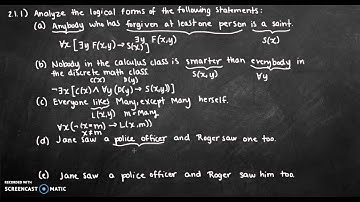 2.1.1) Analyze the logical forms of the following statements:
(a) Anybody who has forgiven at least one person is a saint.
∃y F(x,y) S(x)
∀x [∃y F(x,y) → S(x)]
(b) Nobody in the calculus class is smarter than everybody in
the discrete math class. S(x,y) ∀y
C(x) D(y)
¬∃x [C(x) ∧ ∀y (D(y) → S(x,y))]
(c) Everyone likes Mary, except Mary herself.
L(x,y) m = Mary
∀x (¬(x=m) → L(x,m))
x≠m
(d) Jane saw a police officer and Roger saw one too.
(e) Jane saw a police officer and Roger saw him too.
RECORDED WITH
SCREENCAST MATIC